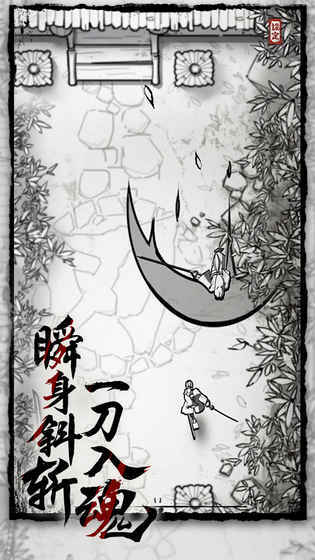 一刀入魂
瞬身斜斩